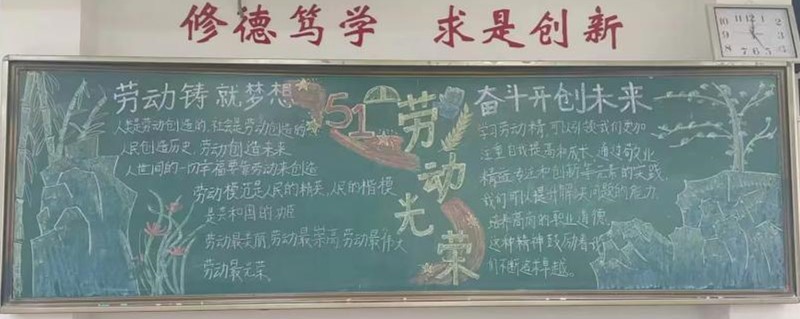 修德笃学 求是创新
劳动铸就梦想
人类是劳动创造的,社会是劳动创造的
人民创造历史,劳动创造未来
人世间的一切幸福要靠劳动来创造
劳动模范是人民的精英,人民的楷模
是共和国的功臣
劳动最美丽,劳动最崇高,劳动最伟大
劳动最光荣
51
劳动光荣
奋斗开创未来
学习劳动精,可以引领我们更加
注重自我提高和成长,通过敬业
精益专注和创新等元素的实践,
我们可以提升解决问题的能力,
培养高尚的职业道德,
这种精神鼓励着我
们不断追求卓越。
12
1
2
3
4
5
6
7
8
9
10
11